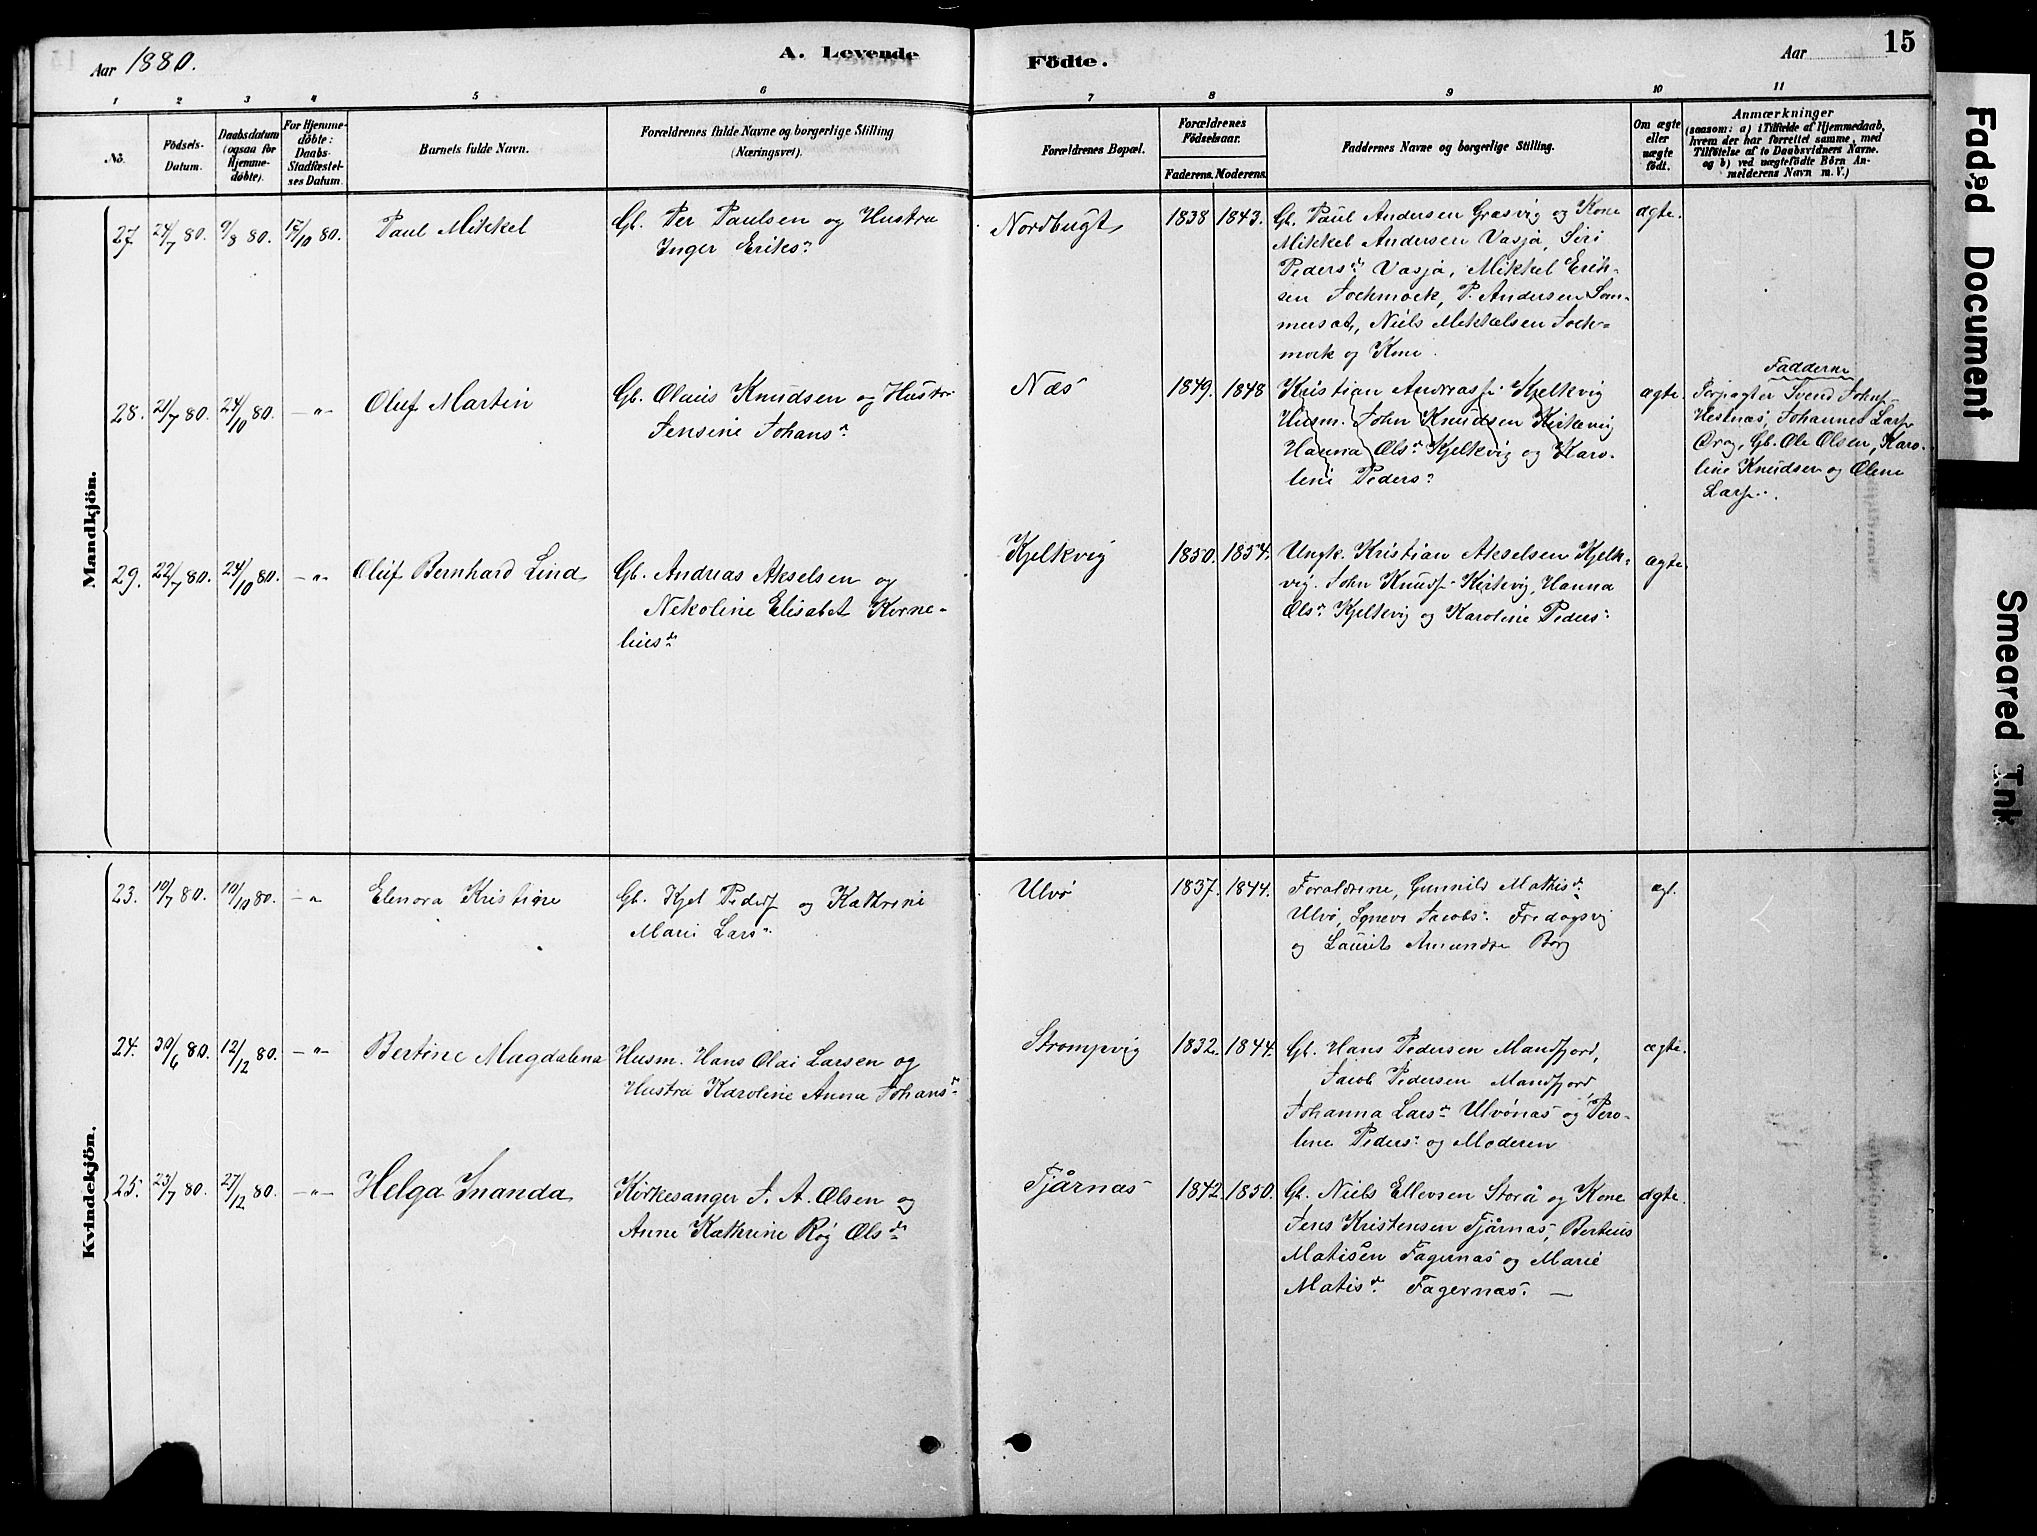 Aar 1880. A. Levende
Fødte. Aar 15
1 2 3 4 5 6
7 8 9 10 11
No.
Fødsels-
Datum.
Daabsdatum
(ogsaa for
Hjemme-
døbte).
For Hjemme-
døbte:
Daabs-
Stadfæstel-
ses Datum.
Barnets fulde Navn.
Forældrenes fulde Navne og borgerlige Stilling
(Næringsvei).
Forældrenes Bopæl.
Forældrenes
Fødselsaar.
Faderens. Moderens.
Faddernes Navne og borgerlige Stilling.
Om ægte
eller
uægte
født.
Anmærkninger
(saasom: a) i Tilfælde af Hjemmedaab,
hvem der har forrettet samme, med
Tilføielse af to Daabsvidners Navne.
og b) ved uægtefødte Børn An-
melderens Navn m. V.)
Mandkjøn.
27. 24/7 80. 9/8 80. 17/10 80. Paul Mikkel
Gb. Per Paulsen og Hustru
Inger Eriksdr
Nordbugt 1838 1843.
Gb. Paul Andersen Grasvig og Kone
Mikkel Andersen Vasja, Siri
Pedersdr Vasja, Mikkel Erik-
sen Jockmock, P. Andersen Som-
mersæt, Niels Mikkelsen Jock-
mock og Kone.
ægte.
28. 21/7 80. 24/10 80. – " Oluf Martin
Gb. Olaus Knudsen og Hustru
Jensine Johansdr
Næs 1849. 1848
Kristian Andreass. Kjelkvig
Husm. John Knudsen Kirkevig
Hanna Olsdr Kjelkvig og Karo-
line Pedersdr
ægte.
Fadderne
Forpagter Svend Johns.
Hestnæs, Johannes Lars.
Drag, Gb. Ole Olsen, Karo-
line Knudsen og Olene
Lars.
29. 22/7 80. 24/10 80. – " Oluf Bernhard Lind
Gb. Andreas Akselsen og
Nekoline Elisabet Korne-
liusdr
Kjelkvig 1850. 1854.
Ungk. Kristian Akselsen Kjelk-
vig. John Knuds. Kirkevig, Hanna
Olsdr Kjelkvig og Karoline Pedersdr
ægte.
Kvindekjøn.
23. 10/7 80. 10/10 80. – " Elenora Kristine
Gb. Kjel Peders. og Kathrine
Marie Larsdr
Ulvø 1837. 1844.
Forældrene, Gunnild Mathisdr
Ulvø, Syneve Jacobsdr Fredagsvig
og Laurits Amunds. Borg
ægt.
24. 30/6 80. 12/12 80. – " – Bertine Magdalena
Husm. Hans Olai Larsen og
Hustru Karoline Anna Johansdr
Strompvig 1832. 1844.
Gb. Hans Pedersen Mandfjord,
Jacob Pedersen Mandfjord
Johanna Larsdr Ulvønæs og Pero-
line Pedersdr og Moderen
ægte.
25. 23/7 80. 27/12 80. – " – Helga Inanda
Kirkesanger J. A. Olsen og
Anne Kathrine Røg Olsdr
Tjårnæs 1842. 1850.
Gb. Niels Ellevsen Storå og Kone
Jens Kristensen Tjårnæs, Berteus
Matisen Fagernæs og Marie
Matisdr Fagernæs. –
ægte.
Faded Document
Smeared Ink